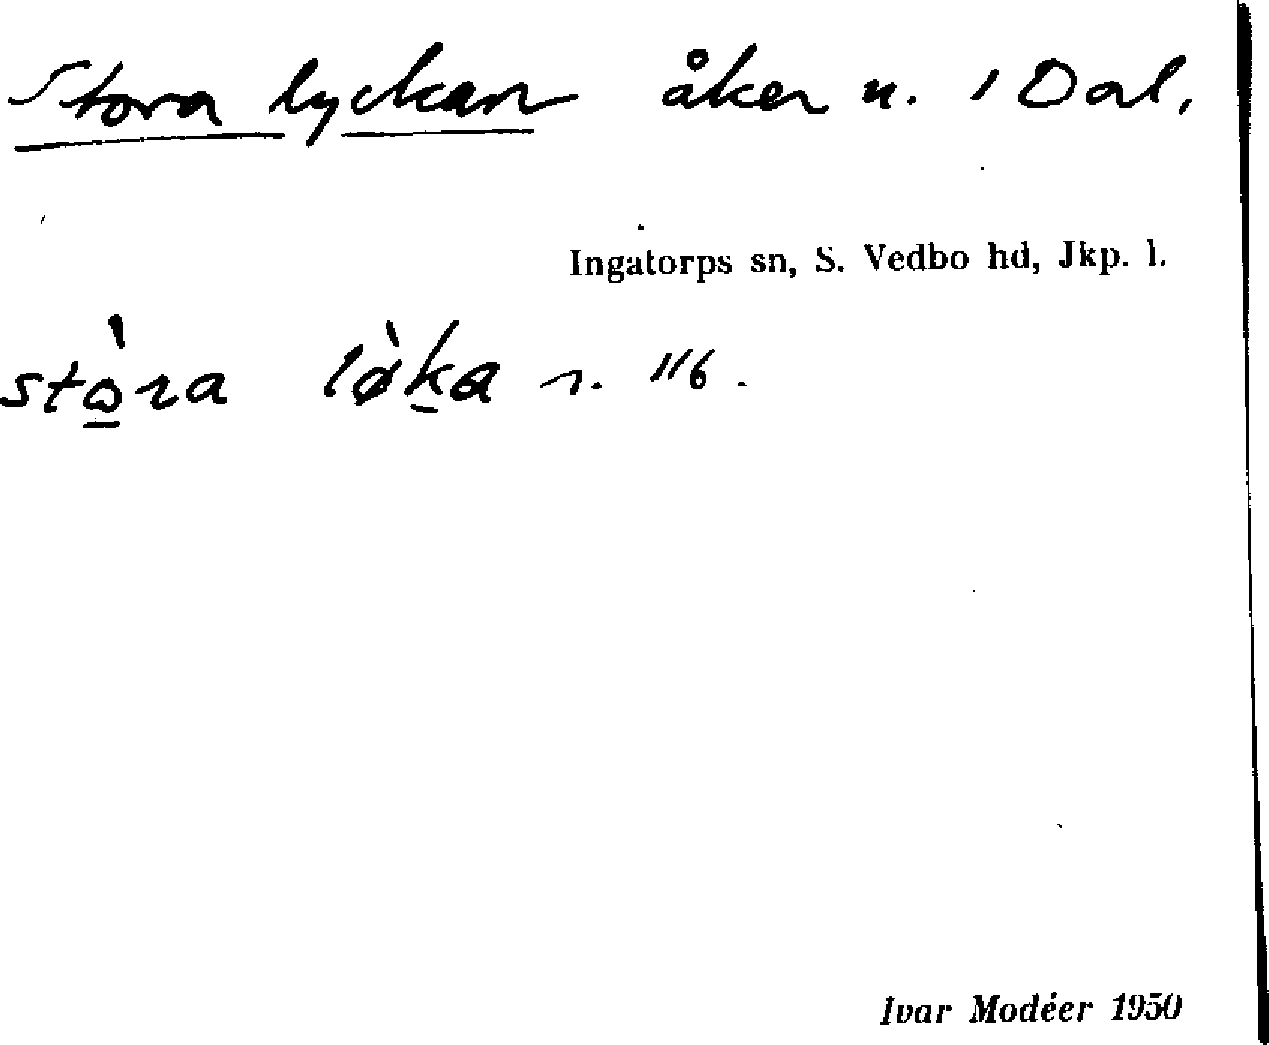 Stora lyckan åker n. i Dal.
Ingatorps sn, S. Vedbo hd, Jkp. l.
stò̱ra lø̀ḵa n. 116.
Ivar Modéer 1950